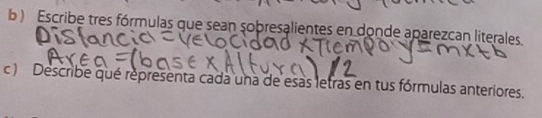 b) Escribe tres fórmulas que sean sobresalientes en donde aparezcan literales.
Distancia = velocidad x Tiempo y = mx+b
Area = (base x Altura) / 2
c) Describe qué representa cada una de esas letras en tus fórmulas anteriores.